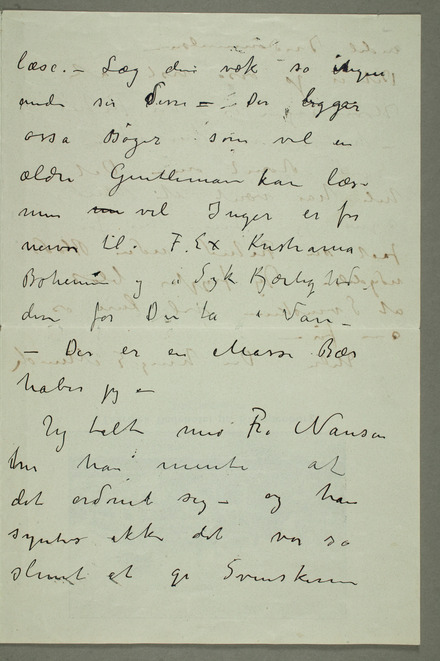 læse. – Læg dem væk so ingen
anden ser Disse – Der lygger
ossa Bøger som vel en
ældre Gentleman kan læse
men vel Inger er for
nervøs til. F.Ex Kristiania
Bohemen og i Syk Kjærlighed
dem får Du ta i Vår –
– Der er en Masse Bær
håber jeg –
Jeg talte med Fru Nansen
han mente at
det ordnet sig – og han
syntes ikke det var so
slemt at gi Svenskerne